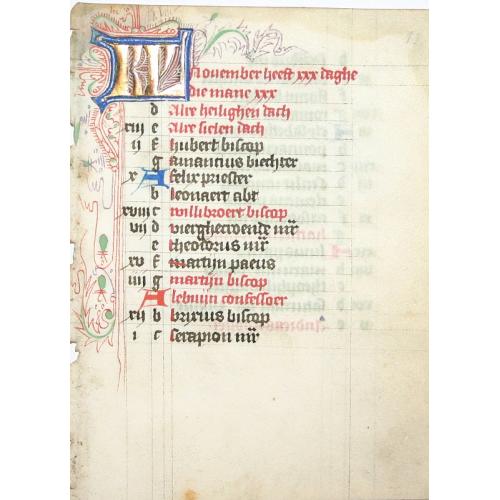 KL November heeft xxx daghe
die mane xxx
d Alre heilighen dach
xiii e Alre sielen dach
ii f hubert biscop
g amantius biechter
x A felix priester
b leonaert abt
xviii c willibroert biscop
vii d vierghecroende mr̄
e theodorus mr̄
xv f martijn paeus
iiii g martijn biscop
A lebuijn confessoer
xii b brixius biscop
i c serapion mr̄